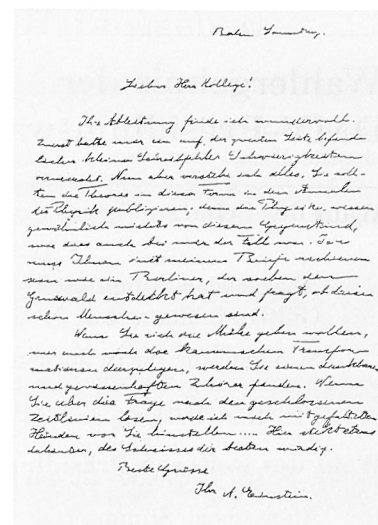 Lieber Herr Kollege!
Ihre Ableitung finde ich wundervoll.
Zuerst hatte mir ein auf der zweiten Seite befind-
licher kleiner Schreibfehler Schwierigkeiten
verursacht. Nun aber verstehe ich alles. Sie soll-
ten die Theorie in dieser Form in den Annalen
der Physik publizieren; denn die Physiker wissen
gewöhnlich nichts von diesem Gegenstand,
wie dies auch bei mir der Fall war. Ich
muss Ihnen mit meinem Briefe erschienen
sein wie ein Berliner, der soeben den
Grunewald entdeckt hat und fragt, ob darin
schon Menschen gewesen sind.
Wenn Sie sich die Mühe geben wollen,
mir auch noch die kanonischen Transfor-
mationen darzulegen, werden Sie einen dankbaren
und gewissenhaften Zuhörer finden. Wenn
Sie aber die Frage nach den geschlossenen
Zeitlinien lösen, werde ich mich mit gefalteten
Händen vor Sie hinstellen..... Hier steckt etwas
dahinter, des Schweisses der Besten würdig.
Beste Grüsse
Ihr A. Einstein.